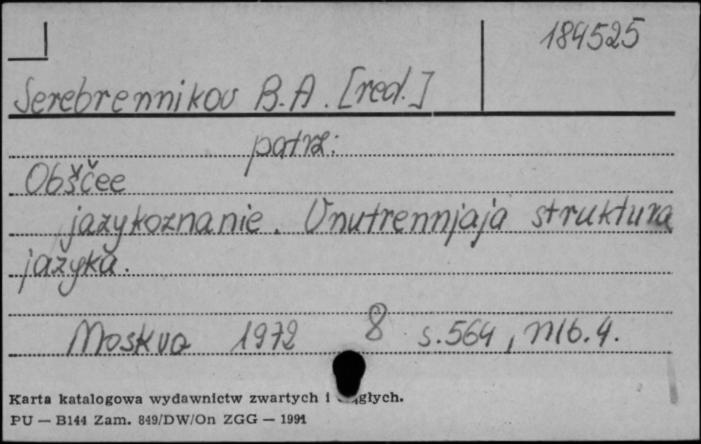 184525
Serebrennikov B.A. [red.]
patrz:
Obščee
jazykoznanie. Vnutrennjaja struktura
jazyka.
Moskva 1972 8 s.564, nlb.4.
Karta katalogowa wydawnictw zwartych i
PU — B144 Zam. 849/DW/On ZGG — 1991